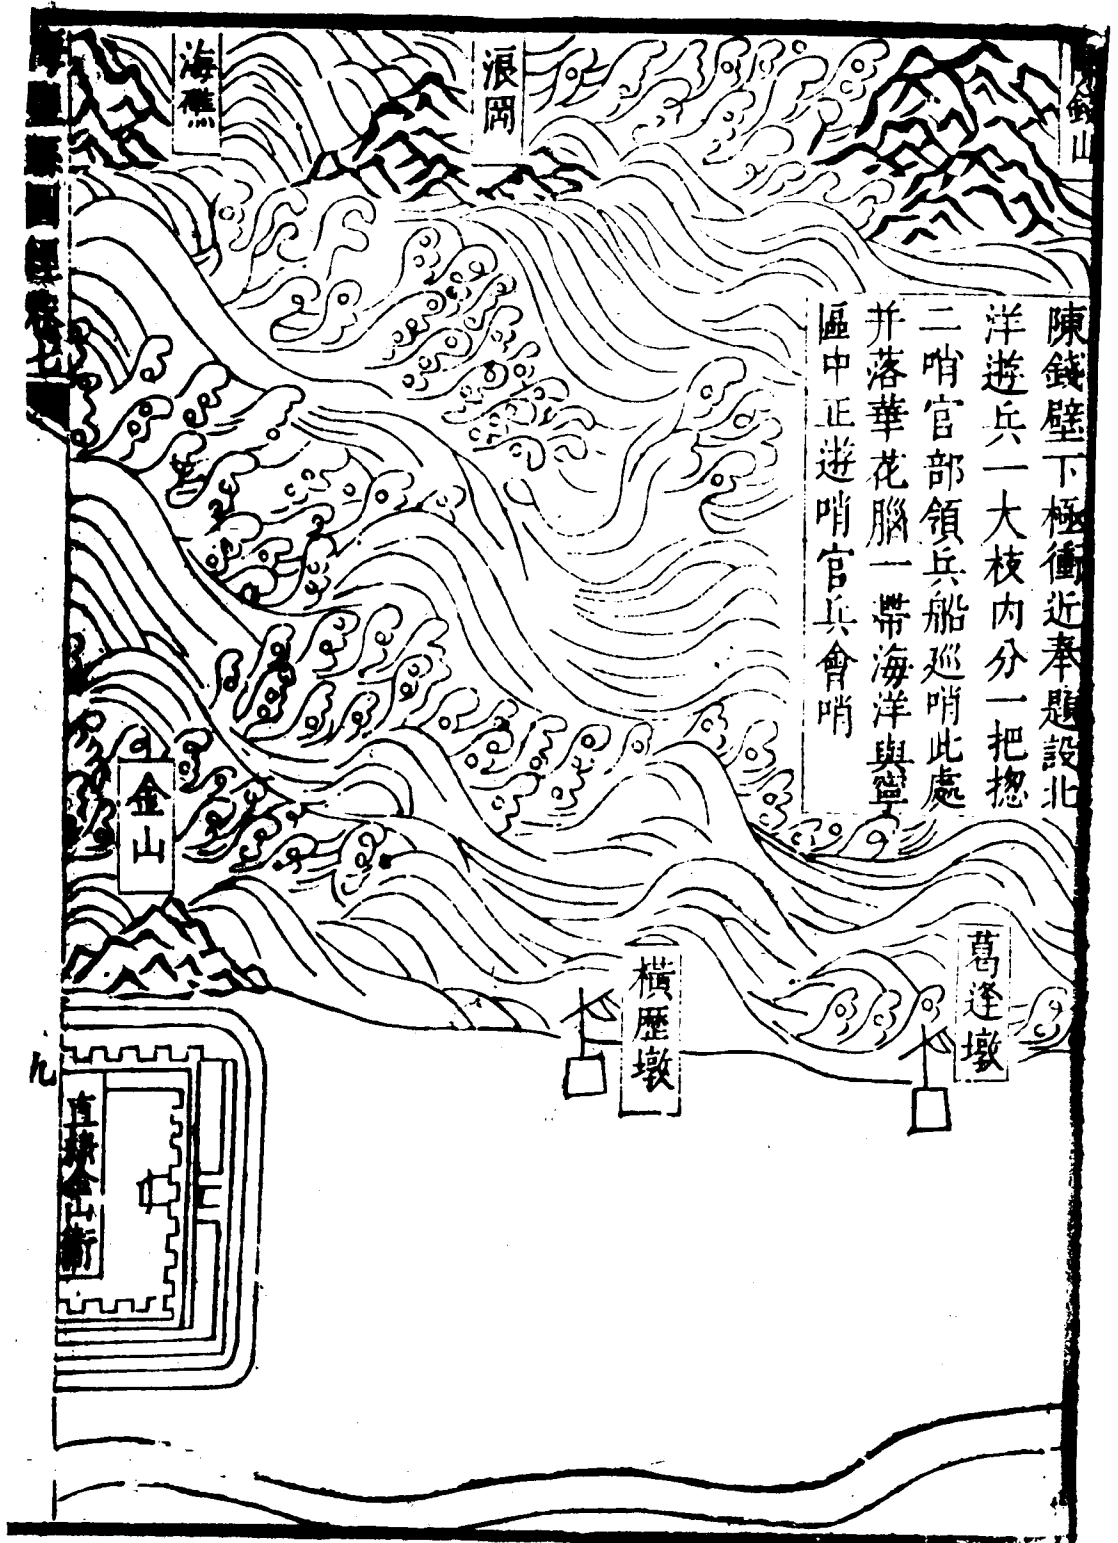 錢山
浪岡
海礁
陳錢壁下極衝近奉題設北
洋遊兵一大枝内分一把揔
二哨官部領兵船廵哨此處
并落華花腦一帶海洋與寧
區中正遊哨官兵會哨
葛逢墩
橫歷墩
金山
直隸金山衛
九